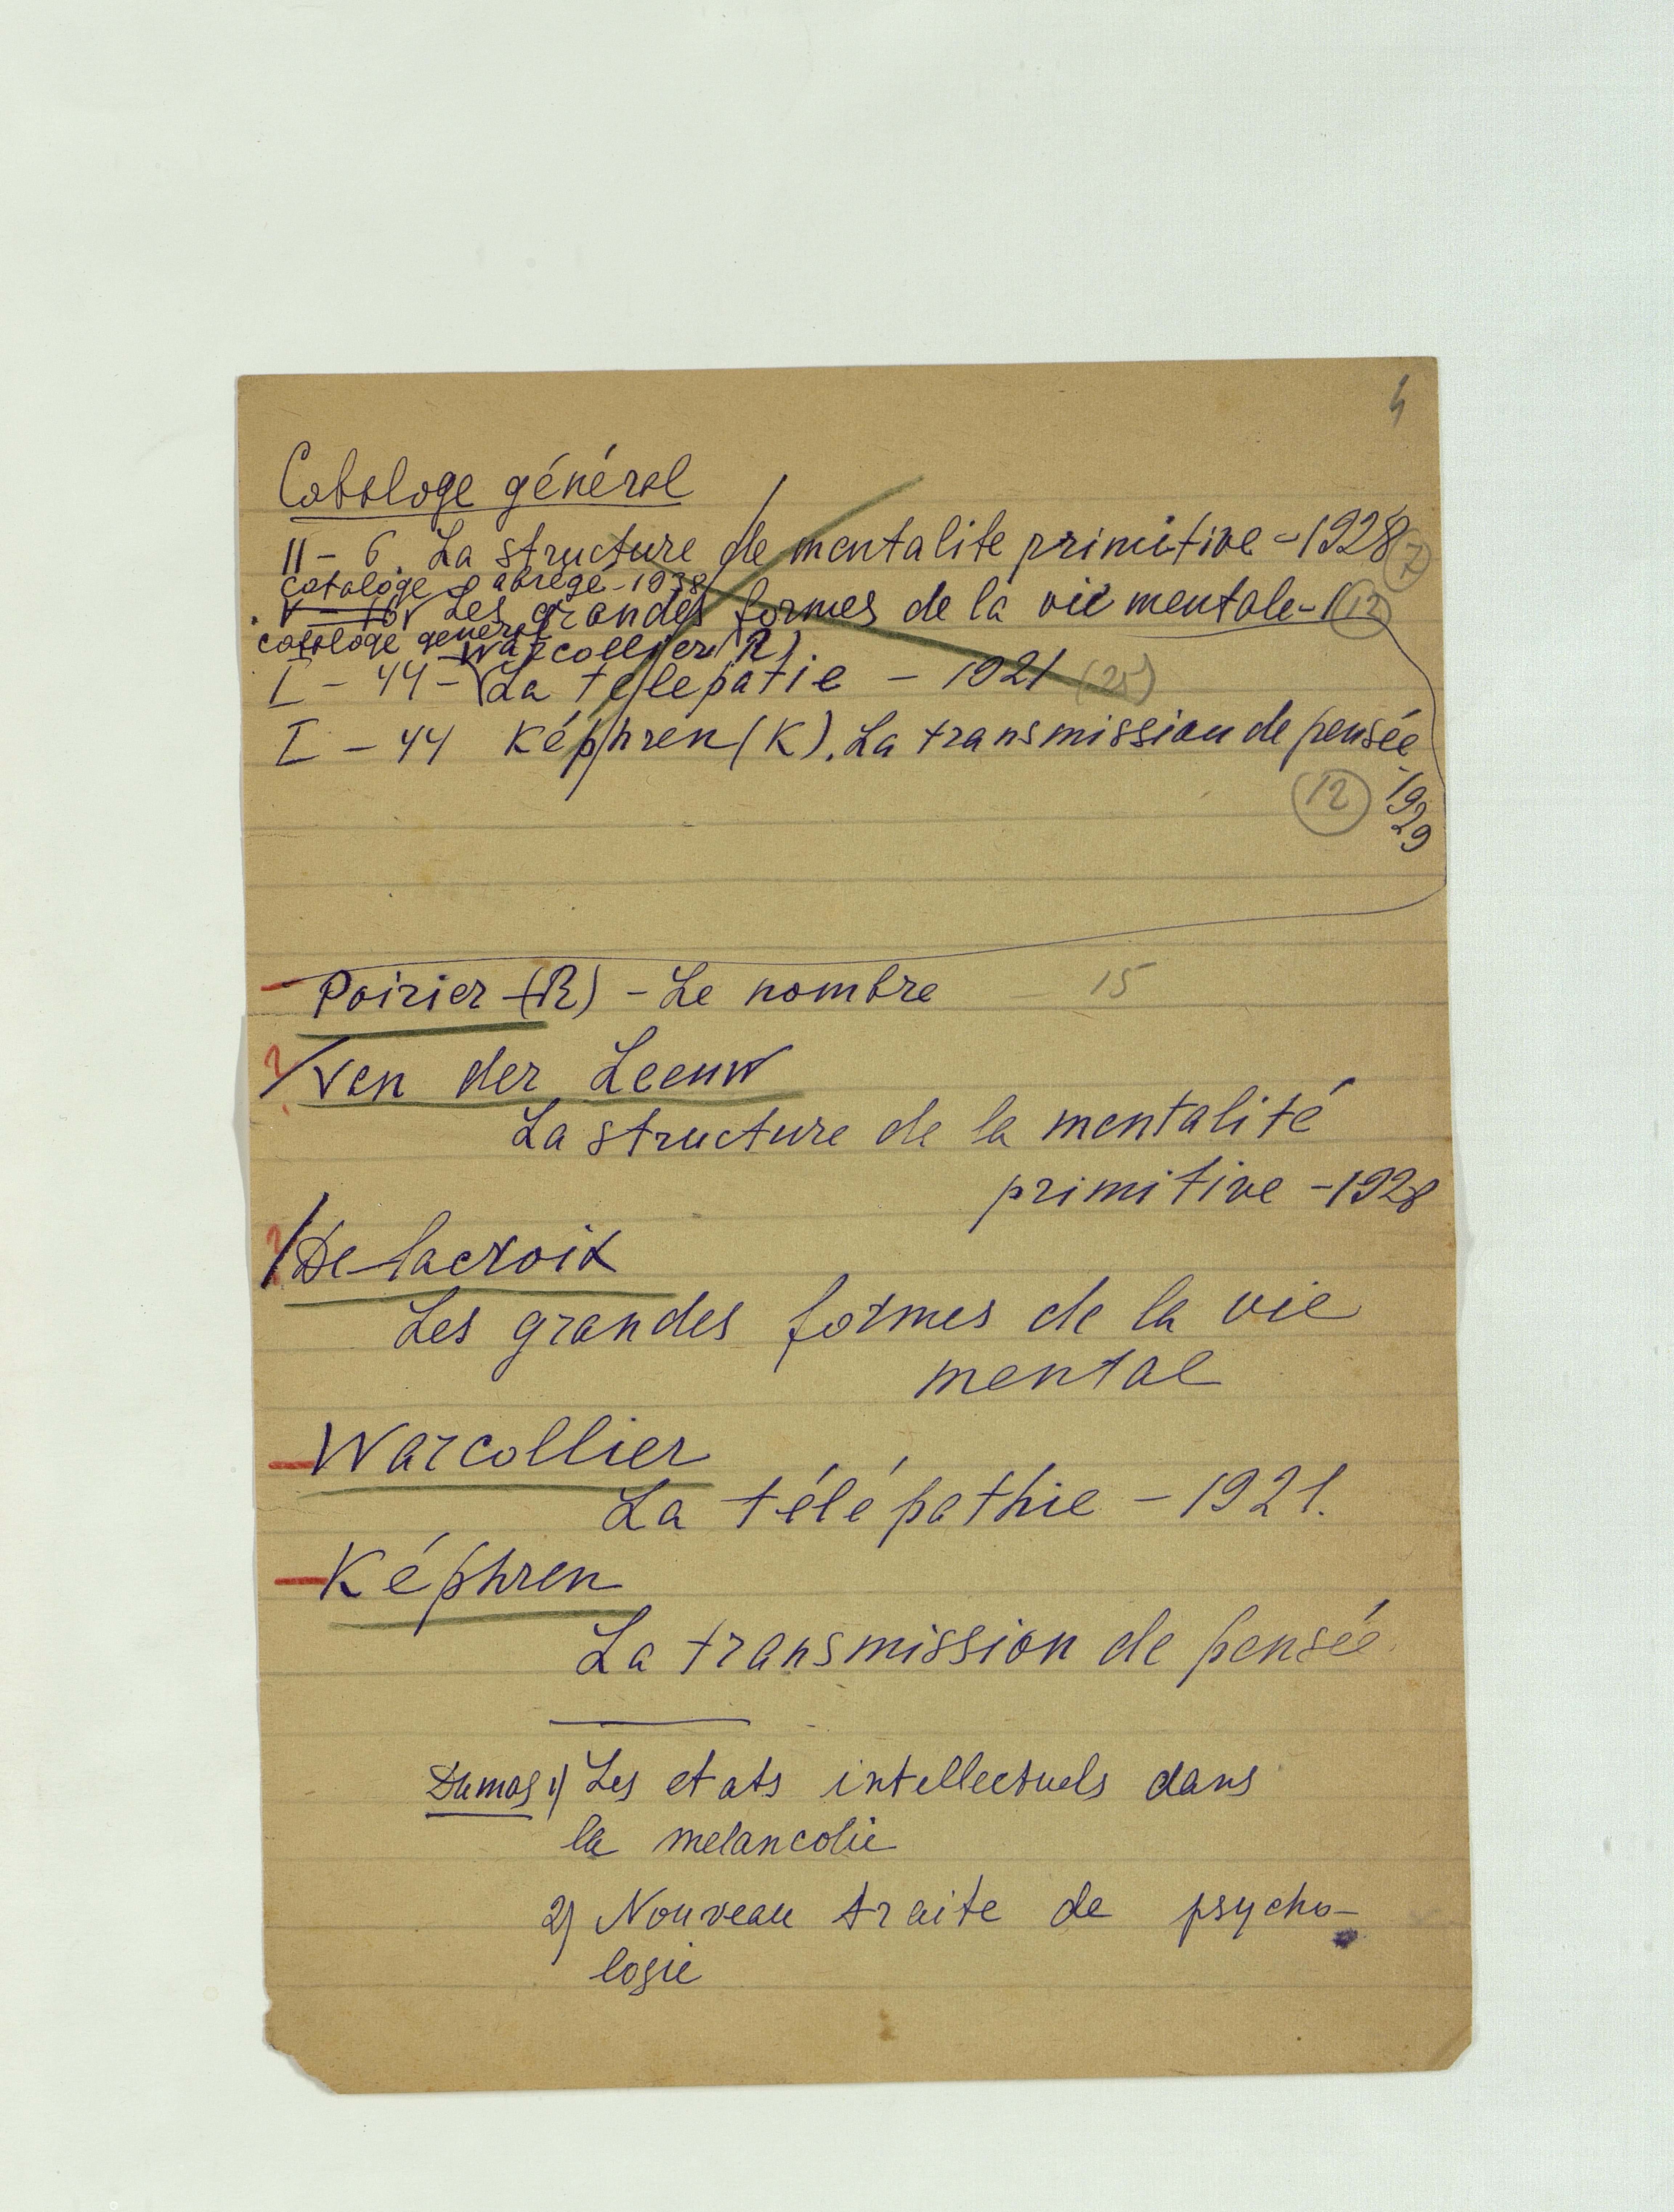 4
Cataloge général
II – 6. La structure de mentalite primitive – 1928 (7)
cataloge abrégé – 1938
V – 16 Les grandes formes de la vie mentale – (12)
cataloge general
Warcollier (R).
I – 44 – La telepatie – 1921 (25)
I – 44 Képhren (K). La transmission de pensée
– 1929
12
Poirier (R) – Le nombre – 15
? Van der Leeuw
La structure de la mentalité
primitive – 1928
? De lacroix
Les grandes formes de la vie
mental
– Warcollier
La télépathie – 1921.
– Képhren
La transmission de pensée
Dumas 1) Les etats intellectuels dans
la melancolie
2) Nouveau traite de psycho-
logie